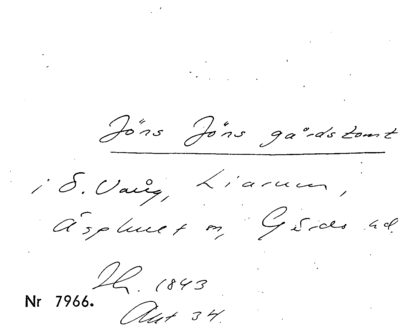 Jöns Jöns gårdstomt
i S. Vång, Liarum,
Äsphult m, Gärds hd.
Jh. 1843
Nr 7966.
Akt 34.